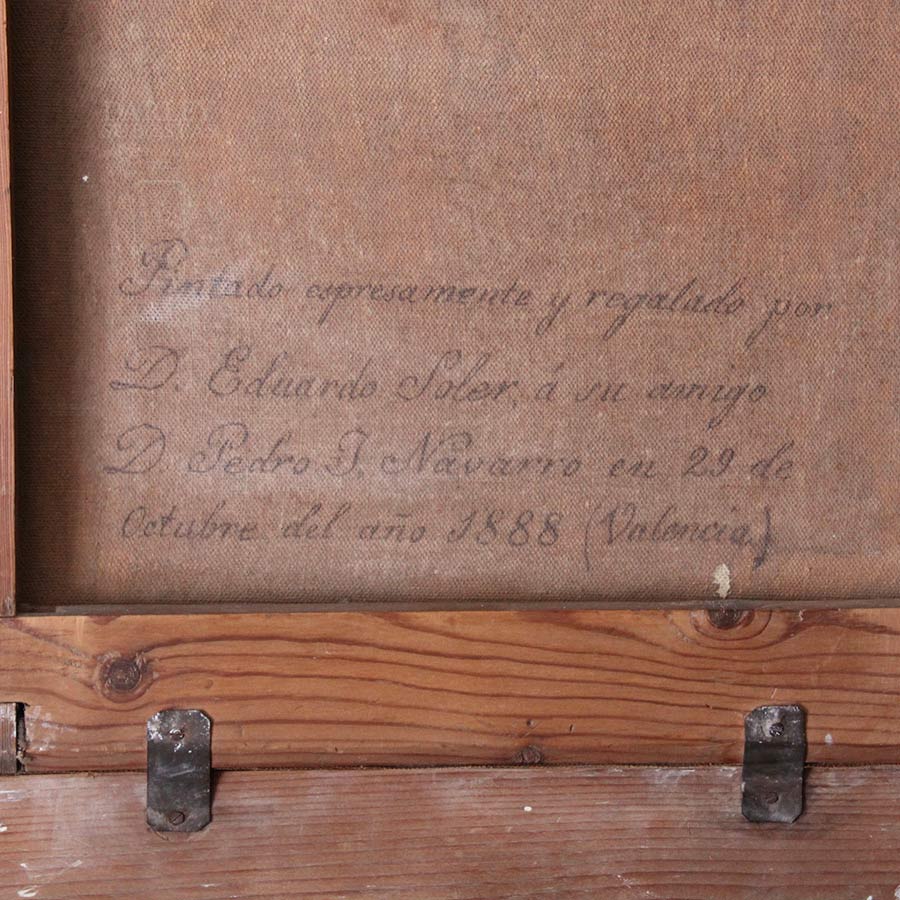 Pintado espresamente y regalado por
D. Eduardo Soler, á su amigo
D. Pedro J. Navarro en 29 de
Octubre del año 1888 (Valencia.)